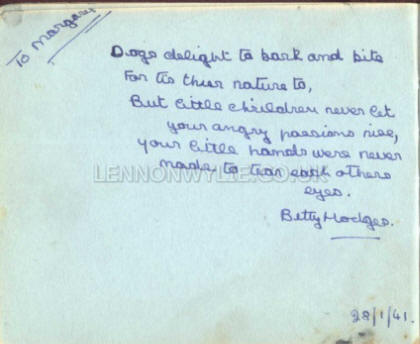 To Margary
Dogs delight to bark and bite
For tis thier nature to,
But little children never let
your angry passions rise,
your little hands were never
made to tear each others
eyes.
Betty Hodges.
LENNONWYLIE.CO.UK
28/1/41.